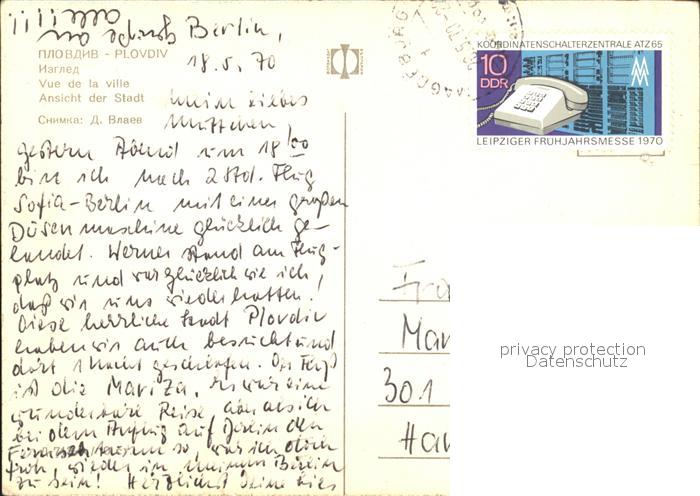 Berlin,
18.5.70
ПЛОВДИВ - PLOVDIV
Изглед
Vue de la ville
Ansicht der Stadt
Снимка: Д. Влаев
Mein liebes
Muttchen
gestern Abend um 18 00
bin ich nach 2 Std. Flug
Sofia-Berlin mit einer großen
Düsenmaschine glücklich ge-
landet. Werner stand am Flug-
platz und war glücklich wie ich,
daß wir uns wieder hatten!
Diese herrliche Stadt Plovdiv
haben wir auch besucht und
dort 1 Nacht geschlafen. Der Fluß
ist die Mariza. Es war eine
wunderbare Reise, aber als ich
bei dem Anflug auf Berlin den
Fernsehturm so, war ich doch
froh, wieder in meinem Berlin
zu sein! Herzlichst Deine
KOORDINATENSCHALTERZENTRALE ATZ 65
10
DDR
MM
LEIPZIGER FRÜHJAHRSMESSE 1970
MAGDEBURG
Mar
301
Han
privacy protection
Datenschutz